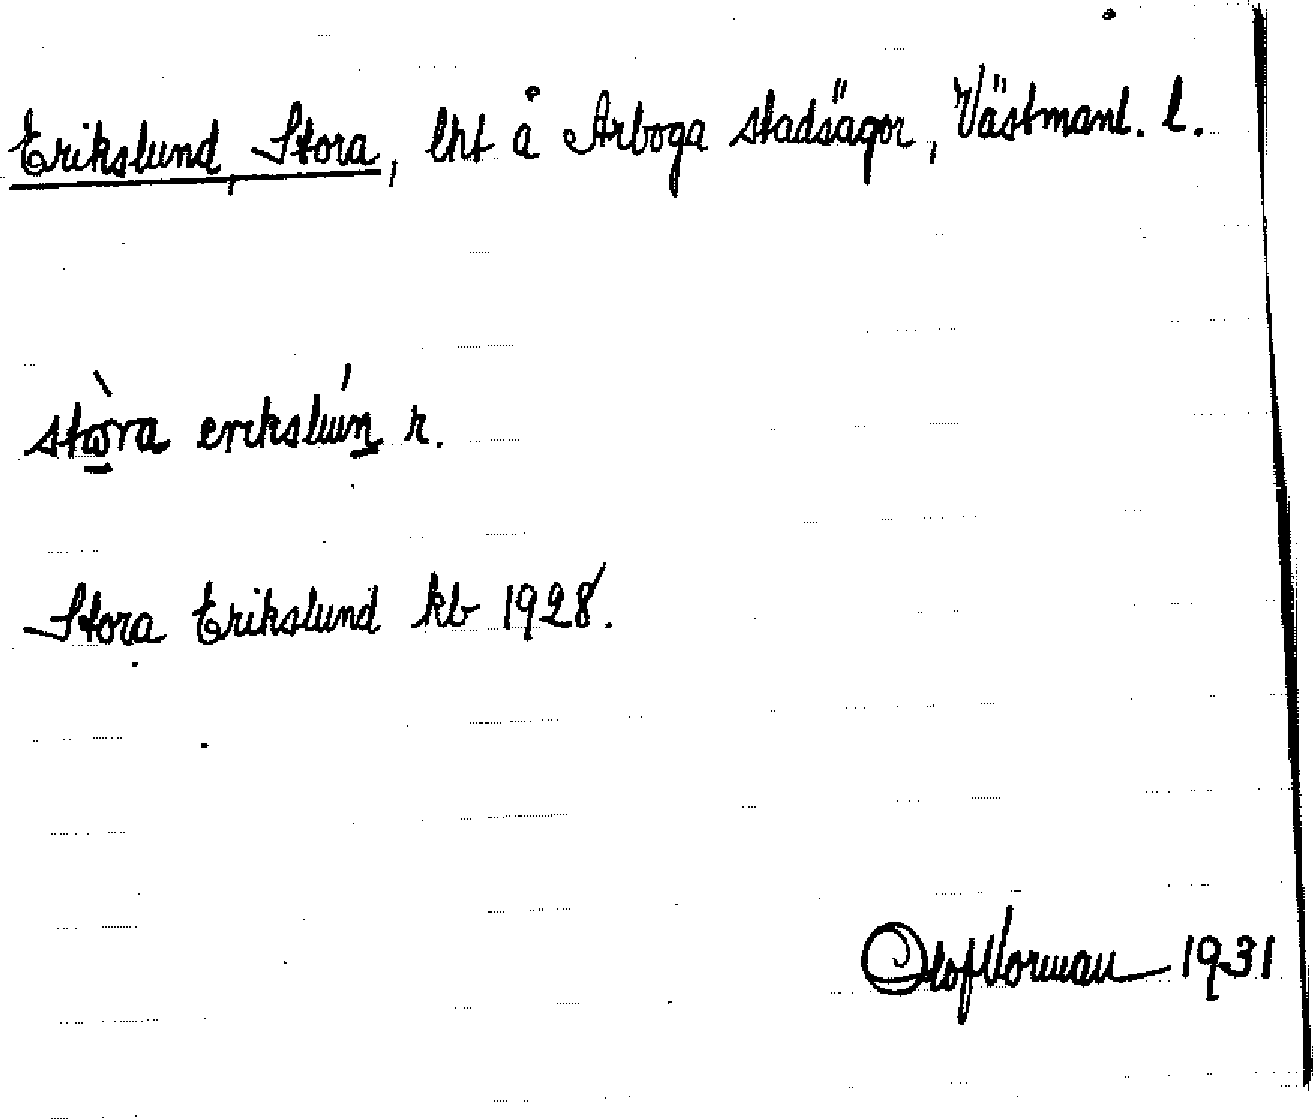 Erikslund, Stora, lht å Arboga stadsägor, Västmanl. l.
stωra erikslun r.
Stora Erikslund kb 1928.
Olof Norman 1931